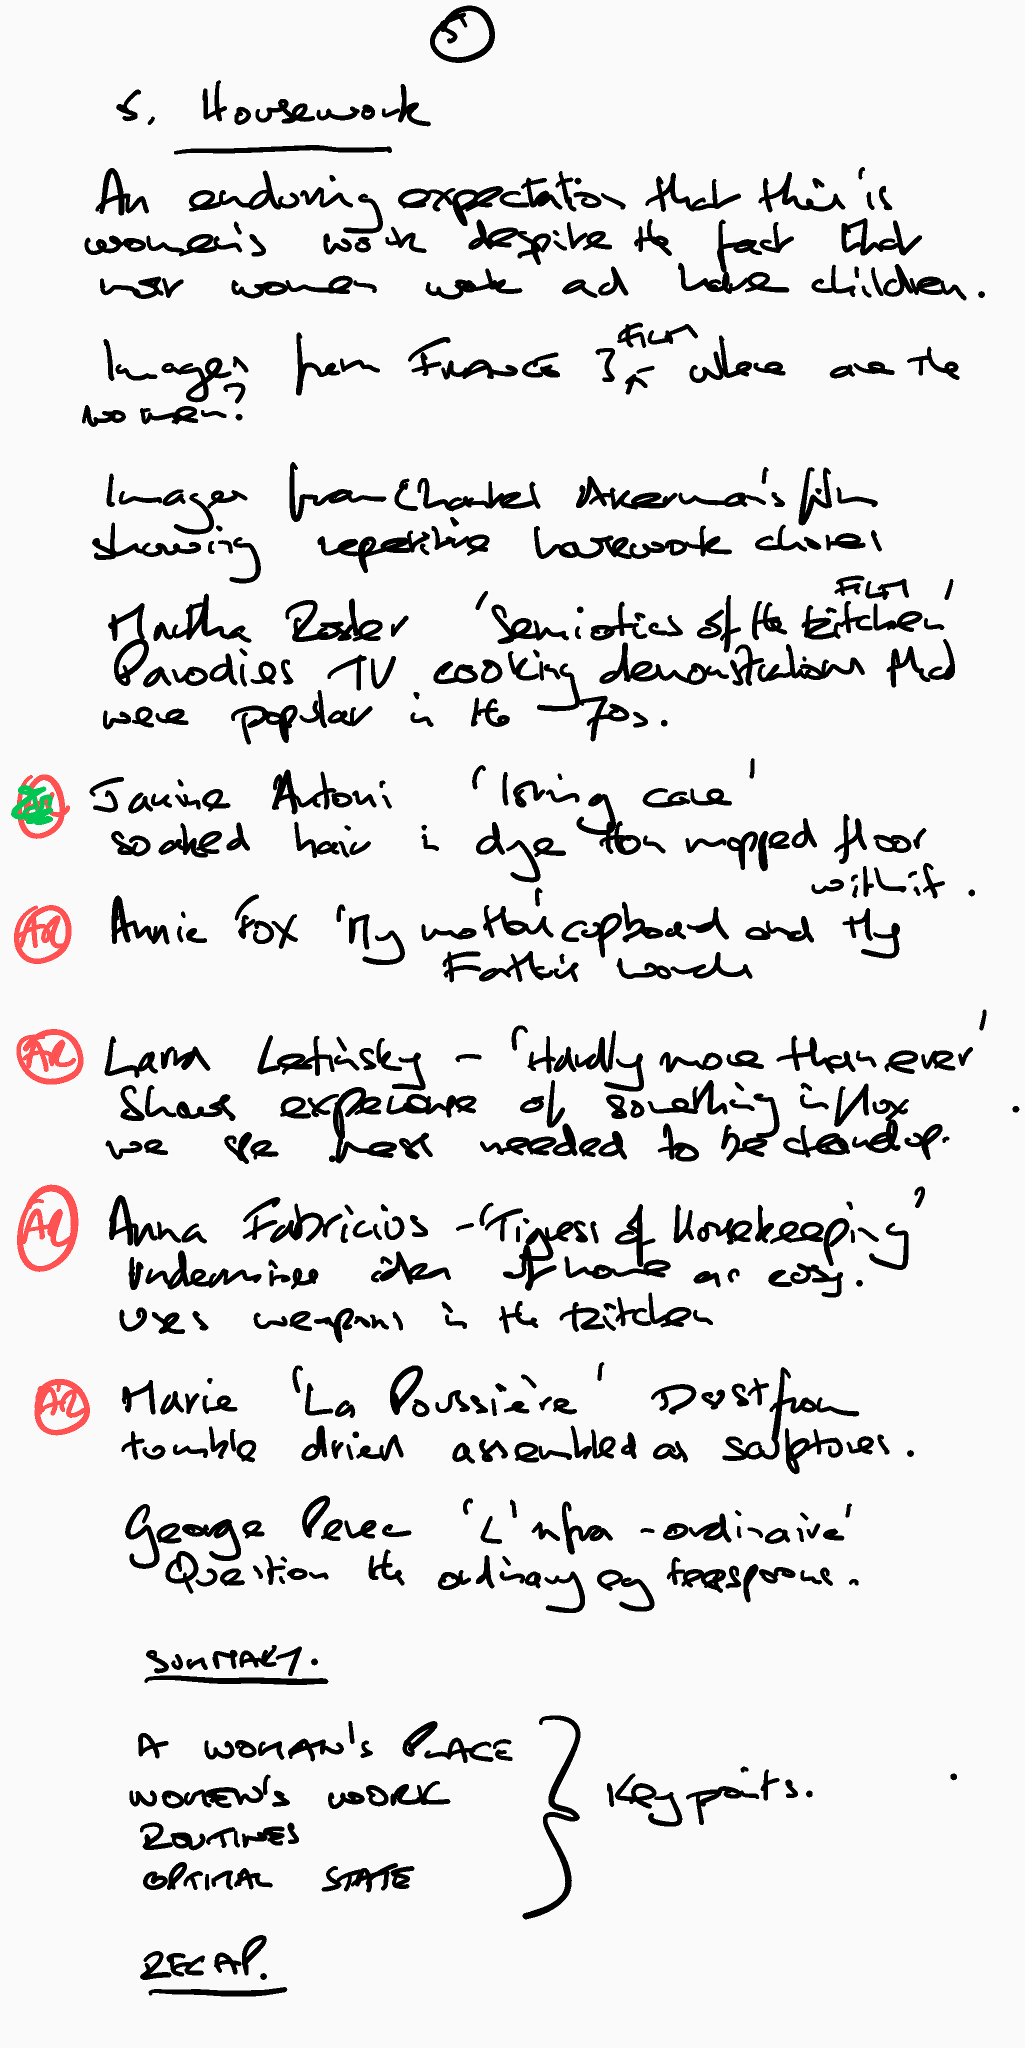 5
5. Housework
An enduring expectation that this is
women's work despite the fact that
most women work and have children.
Images from FRANCE } FILM where are the
women?
Images from Chantel Akerman's film
showing repetitive housework chores
FILM
Martha Rosler 'Semiotics of the kitchen'
Parodies TV cooking demonstrations that
were popular in the 70s.
AR Janine Antoni 'loving care'
soaked hair in dye then mopped floor
with it.
AR Annie Fox 'My mother's cupboard and My
Father's words
AR Laura Letinsky - 'Hardly more than ever'
Shows experience of something in flux
we see mess needed to be cleaned up.
AR Anna Fabricius - 'Tigress of Housekeeping'
Undermines idea of home as cosy.
Uses weapons in the kitchen
AR Marie 'La Poussière' Dust from
tumble driers assembled as sculptures.
George Perec 'L'nfra-ordinaire'
Question the ordinary eg teaspoons.
SUMMARY.
A WOMAN'S PLACE
WOMEN'S WORK
ROUTINES
OPTIMAL STATE
} Key points.
RECAP.